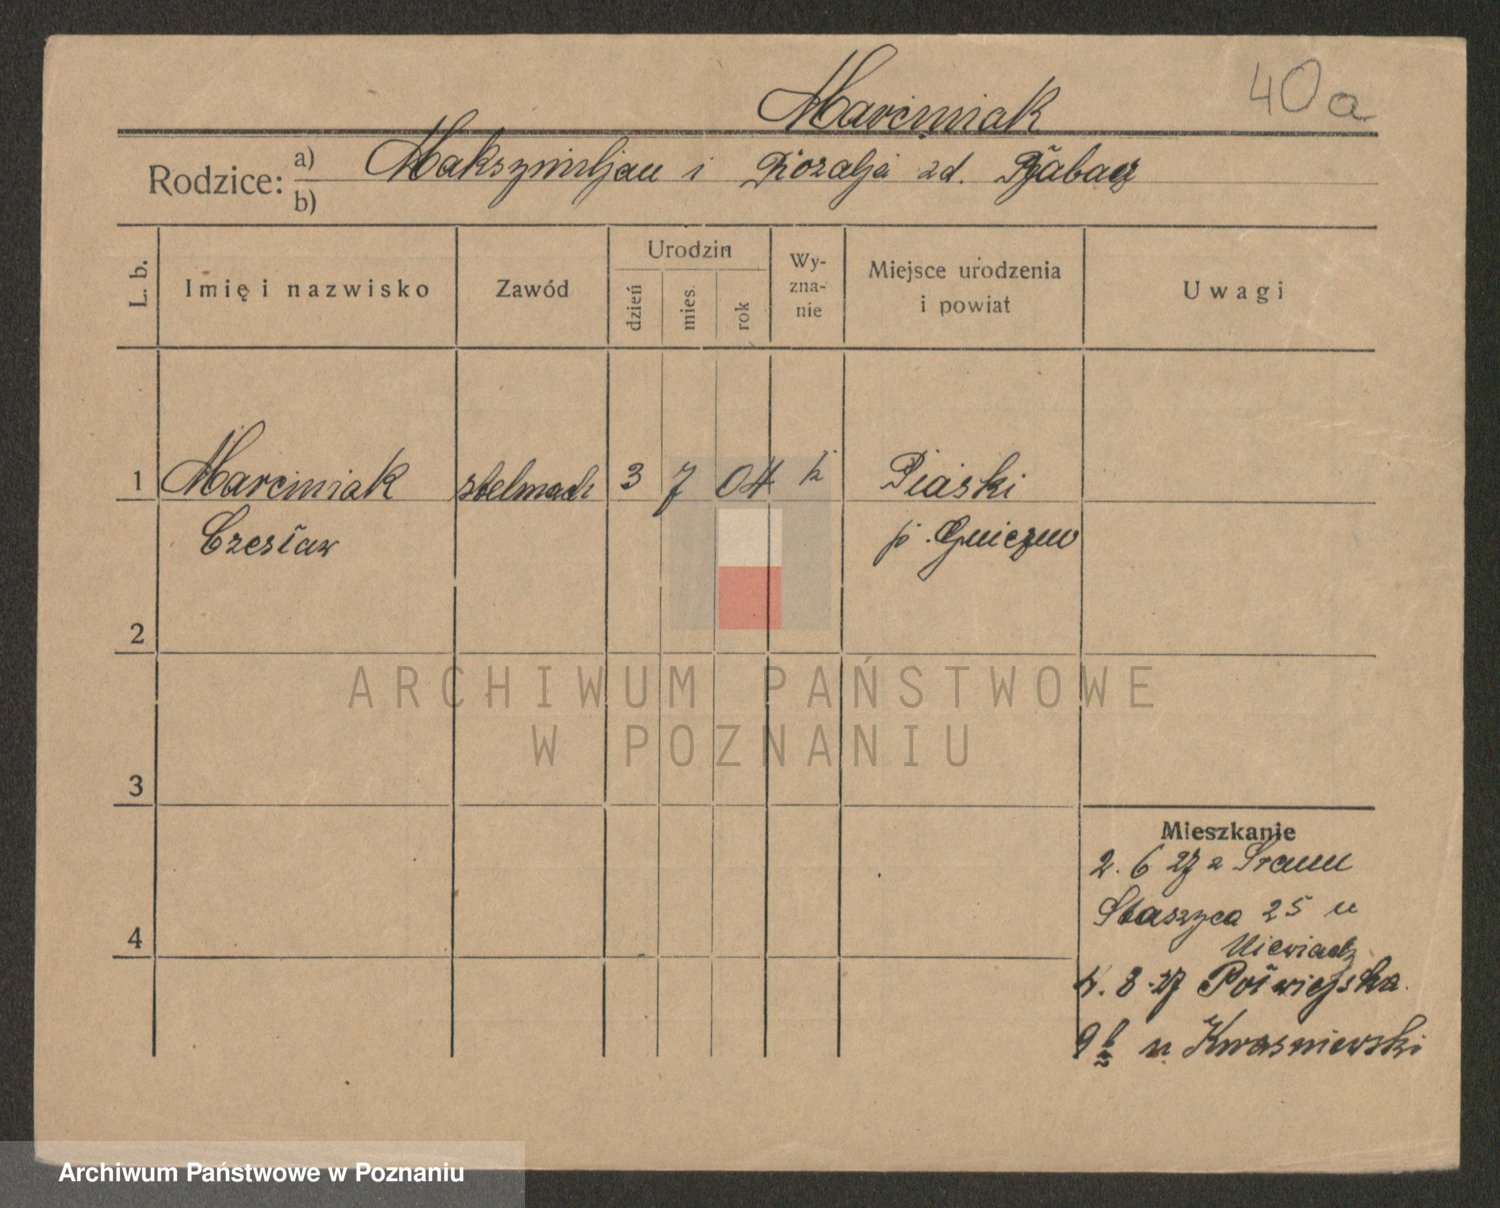 40a
Marciniak
Rodzice: a) Maksymiljan i Rozalja zd.
b)
L. b.
Imię i nazwisko
Zawód
Urodzin
dzień
mies.
rok
Wy-
zna-
nie
Miejsce urodzenia
i powiat
Uwagi
1 Marciniak stelmach 3 7 04 k Piaski
Czesław p. Gniezno
2
3
4
Mieszkanie
2. 6 27 z Śremu
Staszyca 25 u
Niewiadz
4. 8. 27 Poświejska
9 u Kwaśniewski
ARCHIWUM PAŃSTWOWE
W POZNANIU
Archiwum Państwowe w Poznaniu